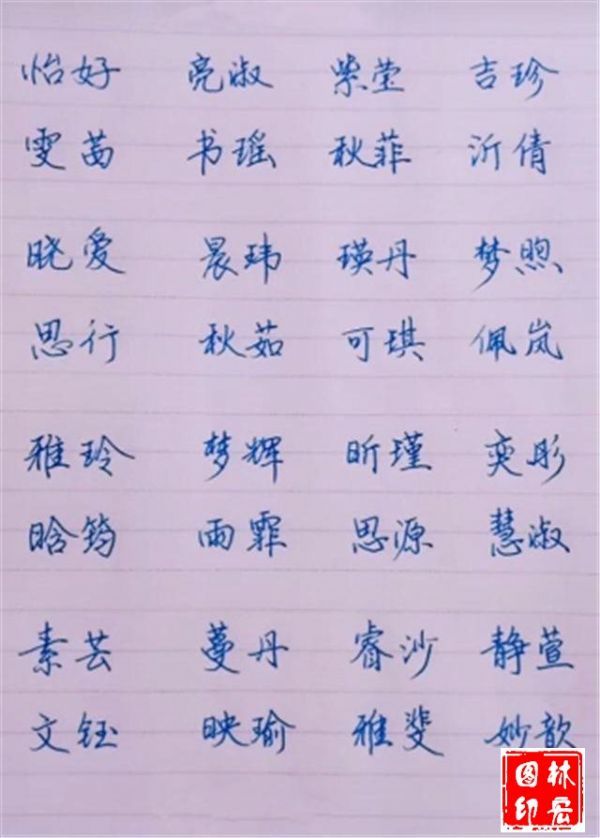 怡好 亮淑 紫莹 吉珍
雯茜 书瑶 秋菲 沂倩
晓爱 晨玮 瑛丹 梦煦
思行 秋茹 可琪 佩岚
雅玲 梦辉 昕瑾 奕彤
晗筠 雨霏 思源 慧淑
素芸 蔓丹 睿沙 静萱
文钰 映瑜 雅斐 妙歆
图林
印居